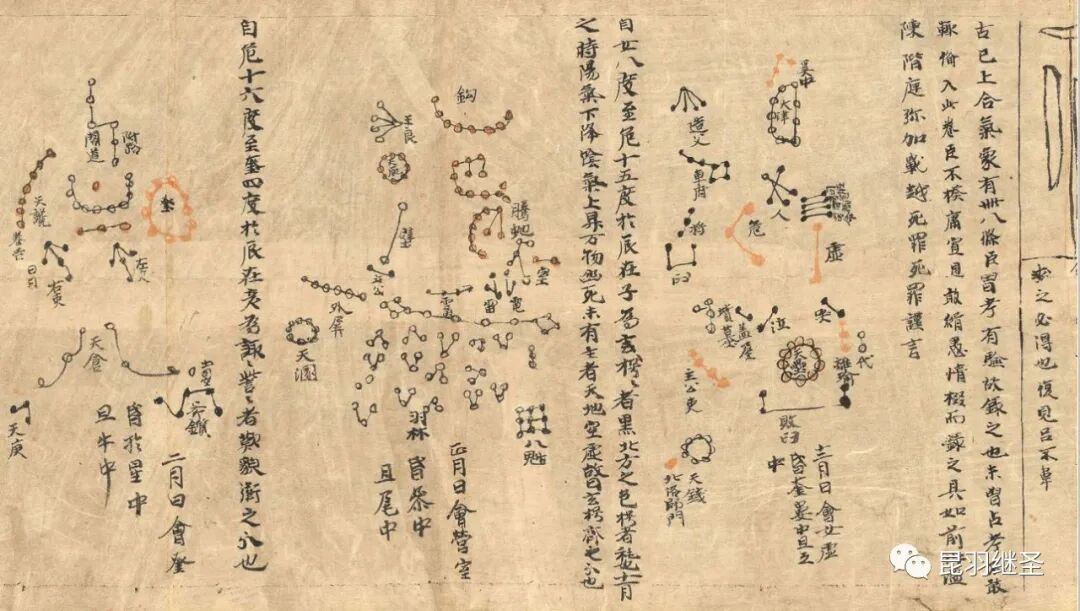 必得也復見呂不韋
古已上合氣象有卌八條臣曾考有驗故錄之也未曾占考不敢
輒備入此卷臣不揆庸冥見敢緝愚情掇而錄之具如前
陳階庭弥加戰越死罪死罪謹言
天津
人
虛
危
造父
車府
杵
臼
哭
泣
代
蓋屋
墳墓
天壘
敗臼
天錢
北落師門
十二月日會女虛
昏奎婁中旦
中
自女八度至危十五度於辰在子為玄枵枵者黑北方之色枵者秏也十一月
之時陽氣下降陰氣上昇万物幽死未有生者天地空虛故曰玄枵齊之分也
鈎
王良
騰蛇
室
電
雷
壁
土公
外屏
天溷
羽林
八魁
正月日會營室
昏參中
旦尾中
自危十六度至奎四度於辰在亥為諏訾訾者
衛之分也
附路
閣道
奎
天倉
天庾
二月日會奎
昏於星中
旦牛中
昆羽继圣